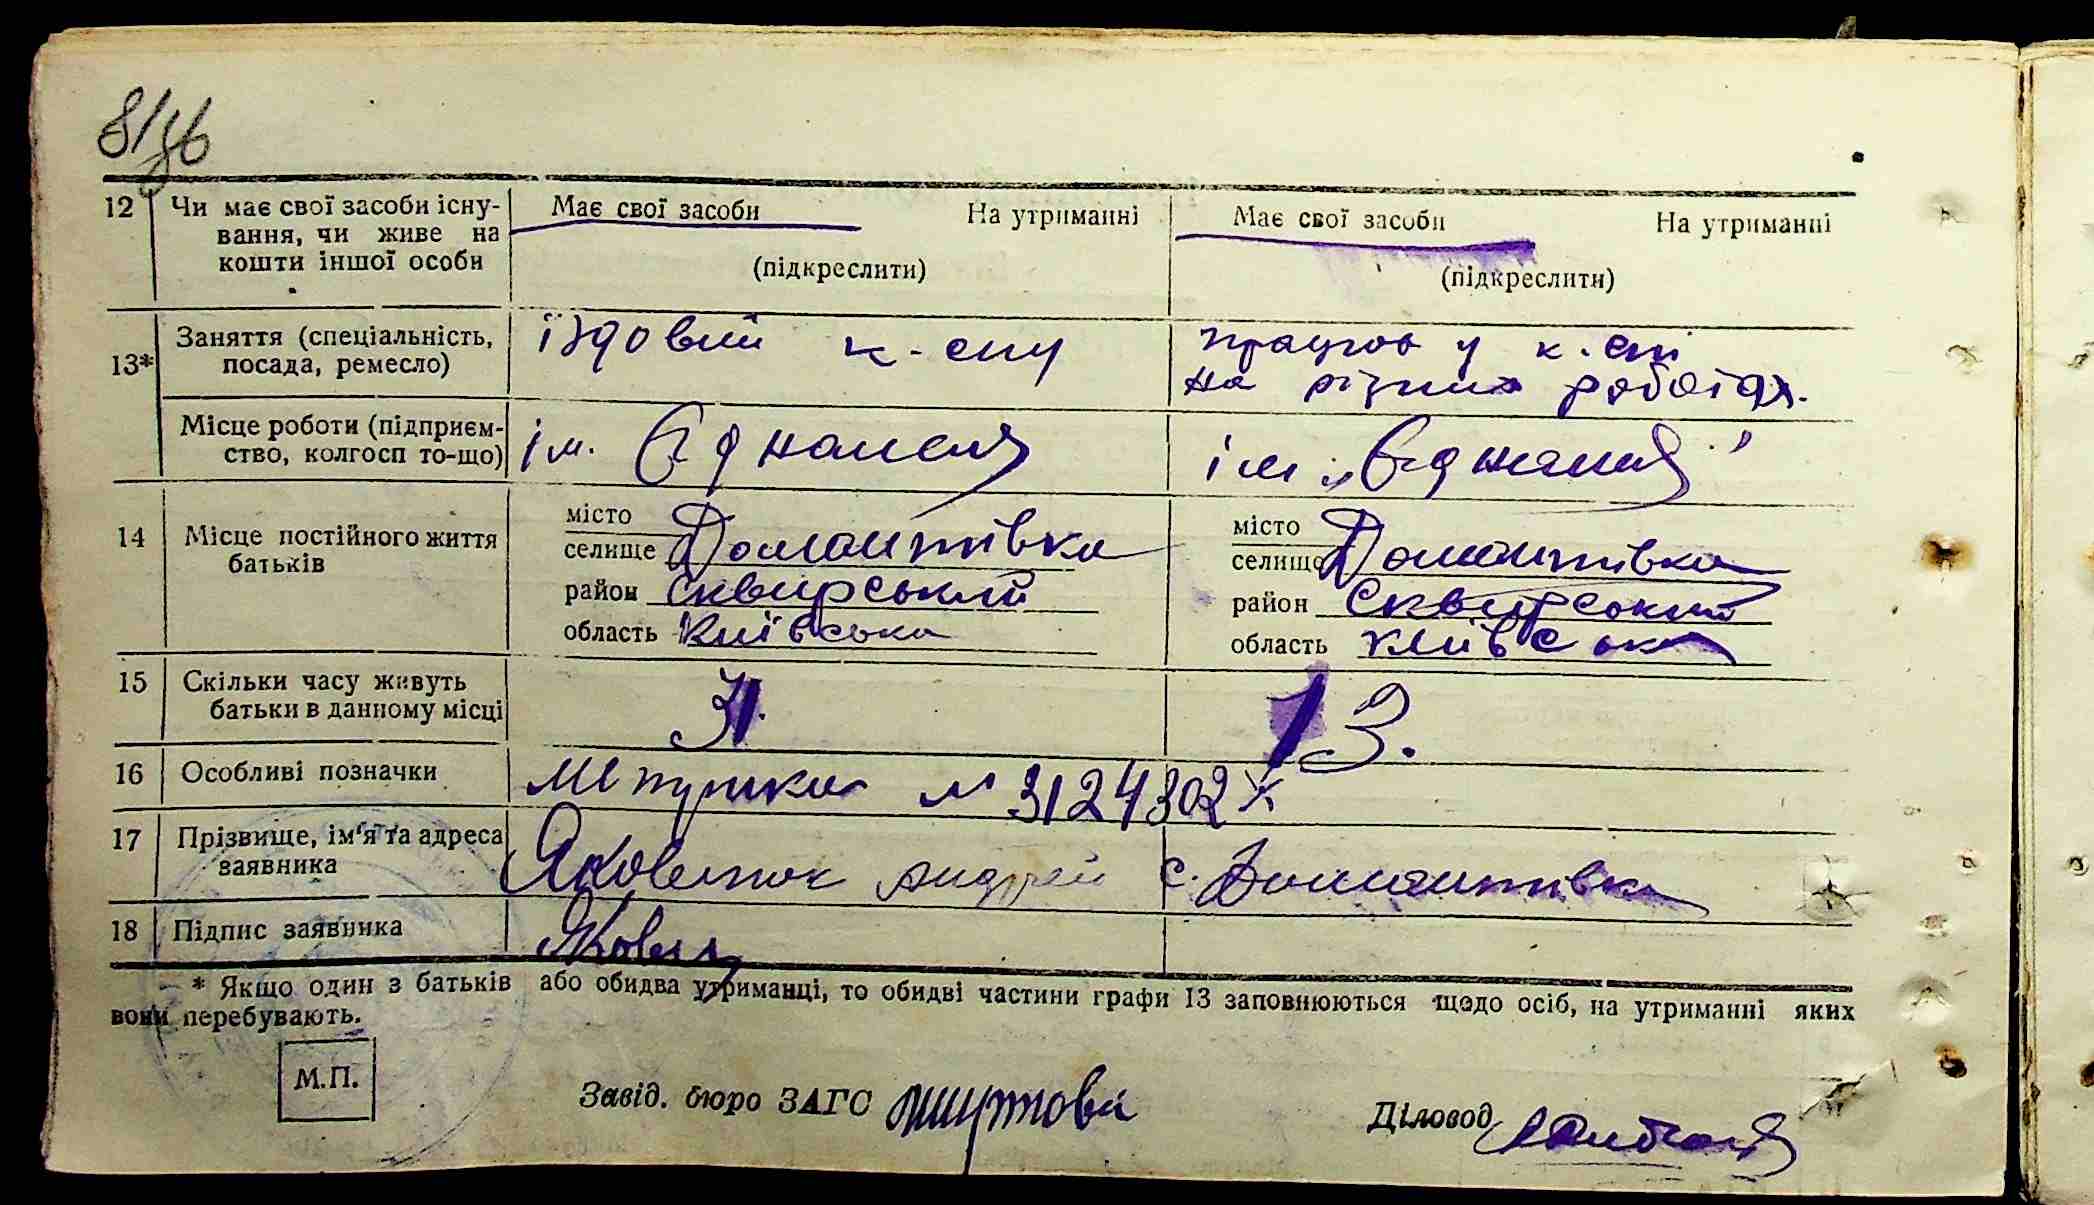 12 Чи має свої засоби існу- Має свої засоби На утриманні Має свої засоби На утриманні
вання, чи живе на
кошти іншої особи (підкреслити) (підкреслити)
13* Заняття (спеціальність, їздовий к-спу працює у к.спі
посада, ремесло) на різних роботах.
Місце роботи (підприєм- ім. ім
ство, колгосп то-що)
14 Місце постійного життя місто місто
батьків селище Домантівка селище Домантівка
район Сквирський район Сквирський
область Київська область Київська
15 Скільки часу живуть 31. 13.
батьки в данному місці
16 Особливі позначки № 3124302
17 Прізвище, ім'я та адреса Яковлюк Андрей с. Домантівка
заявника
18 Підпис заявника
* Якщо один з батьків або обидва утриманці, то обидві частини графи 13 заповнюються щодо осіб, на утриманні яких
вони перебувають.
М.П.
Завід. бюро ЗАГС
Діловод